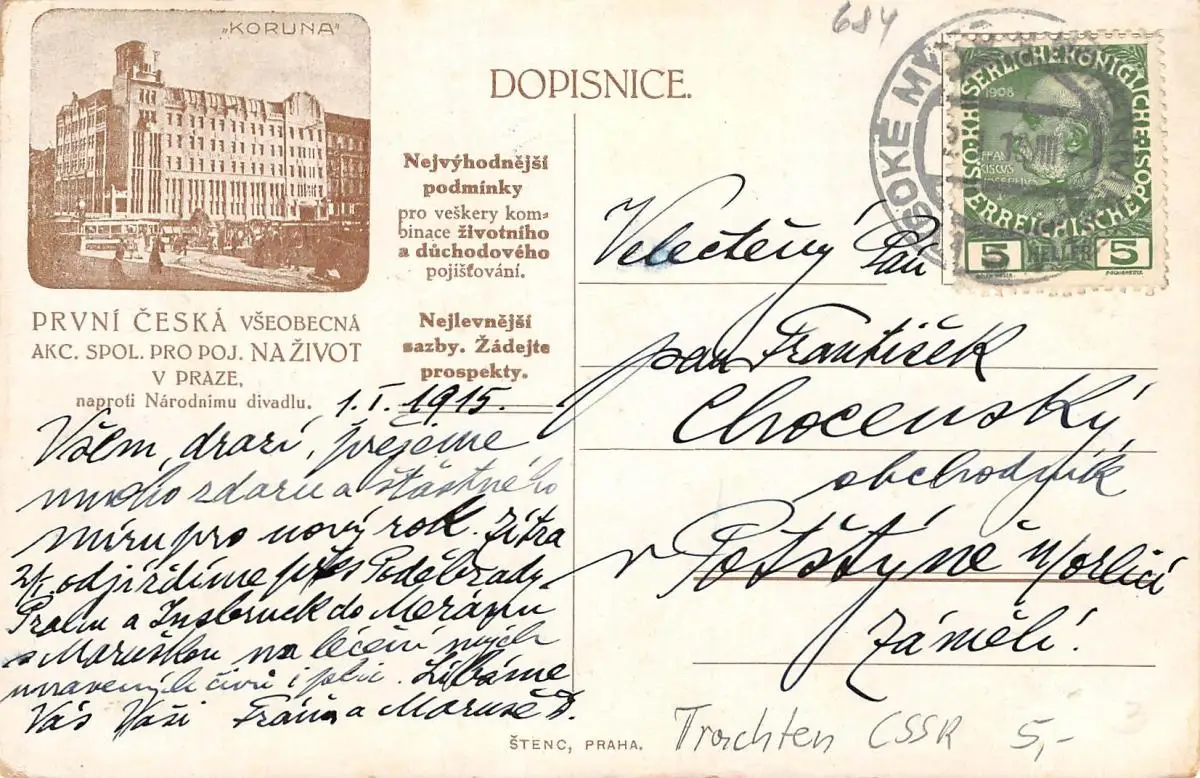 684
„KORUNA"
DOPISNICE.
Nejvýhodnější
podmínky
pro veškery kom=
binace životního
a důchodového
pojišťování.
Nejlevnější
sazby. Žádejte
prospekty.
PRVNÍ ČESKÁ VŠEOBECNÁ
AKC. SPOL. PRO POJ. NA ŽIVOT
V PRAZE,
naproti Národnímu divadlu.
1.I.1915.
Všem, drazí, přejeme
mnoho zdaru a šťastného
míru pro nový rok. Zítra
2/I. odjíždíme přes Poděbrady,
Prahu a Insbruck do Meránu
s Maruškou na léčení mých
unavených čivů i plic. Líbáme
Vás Vaši Fráňa a Maruše D.
SOKÉ MÝ
KAISERLICHE KÖNIGLICHE
ÖSTERREICHISCHE POST
1908
FRAN
CISCUS
IOSEPHUS
5 HELLER 5
Velectěný Pán
pan František
Chocenský,
obchodník
v Potštýně n/Orlicí
Záměl!
ŠTENC, PRAHA.
Trachten ČSSR 5,-
3